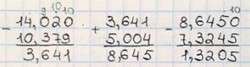 10 10 10
- 14,020 + 3,641 - 8,6450
10,379 5,004 7,3245
3,641 8,645 1,3205